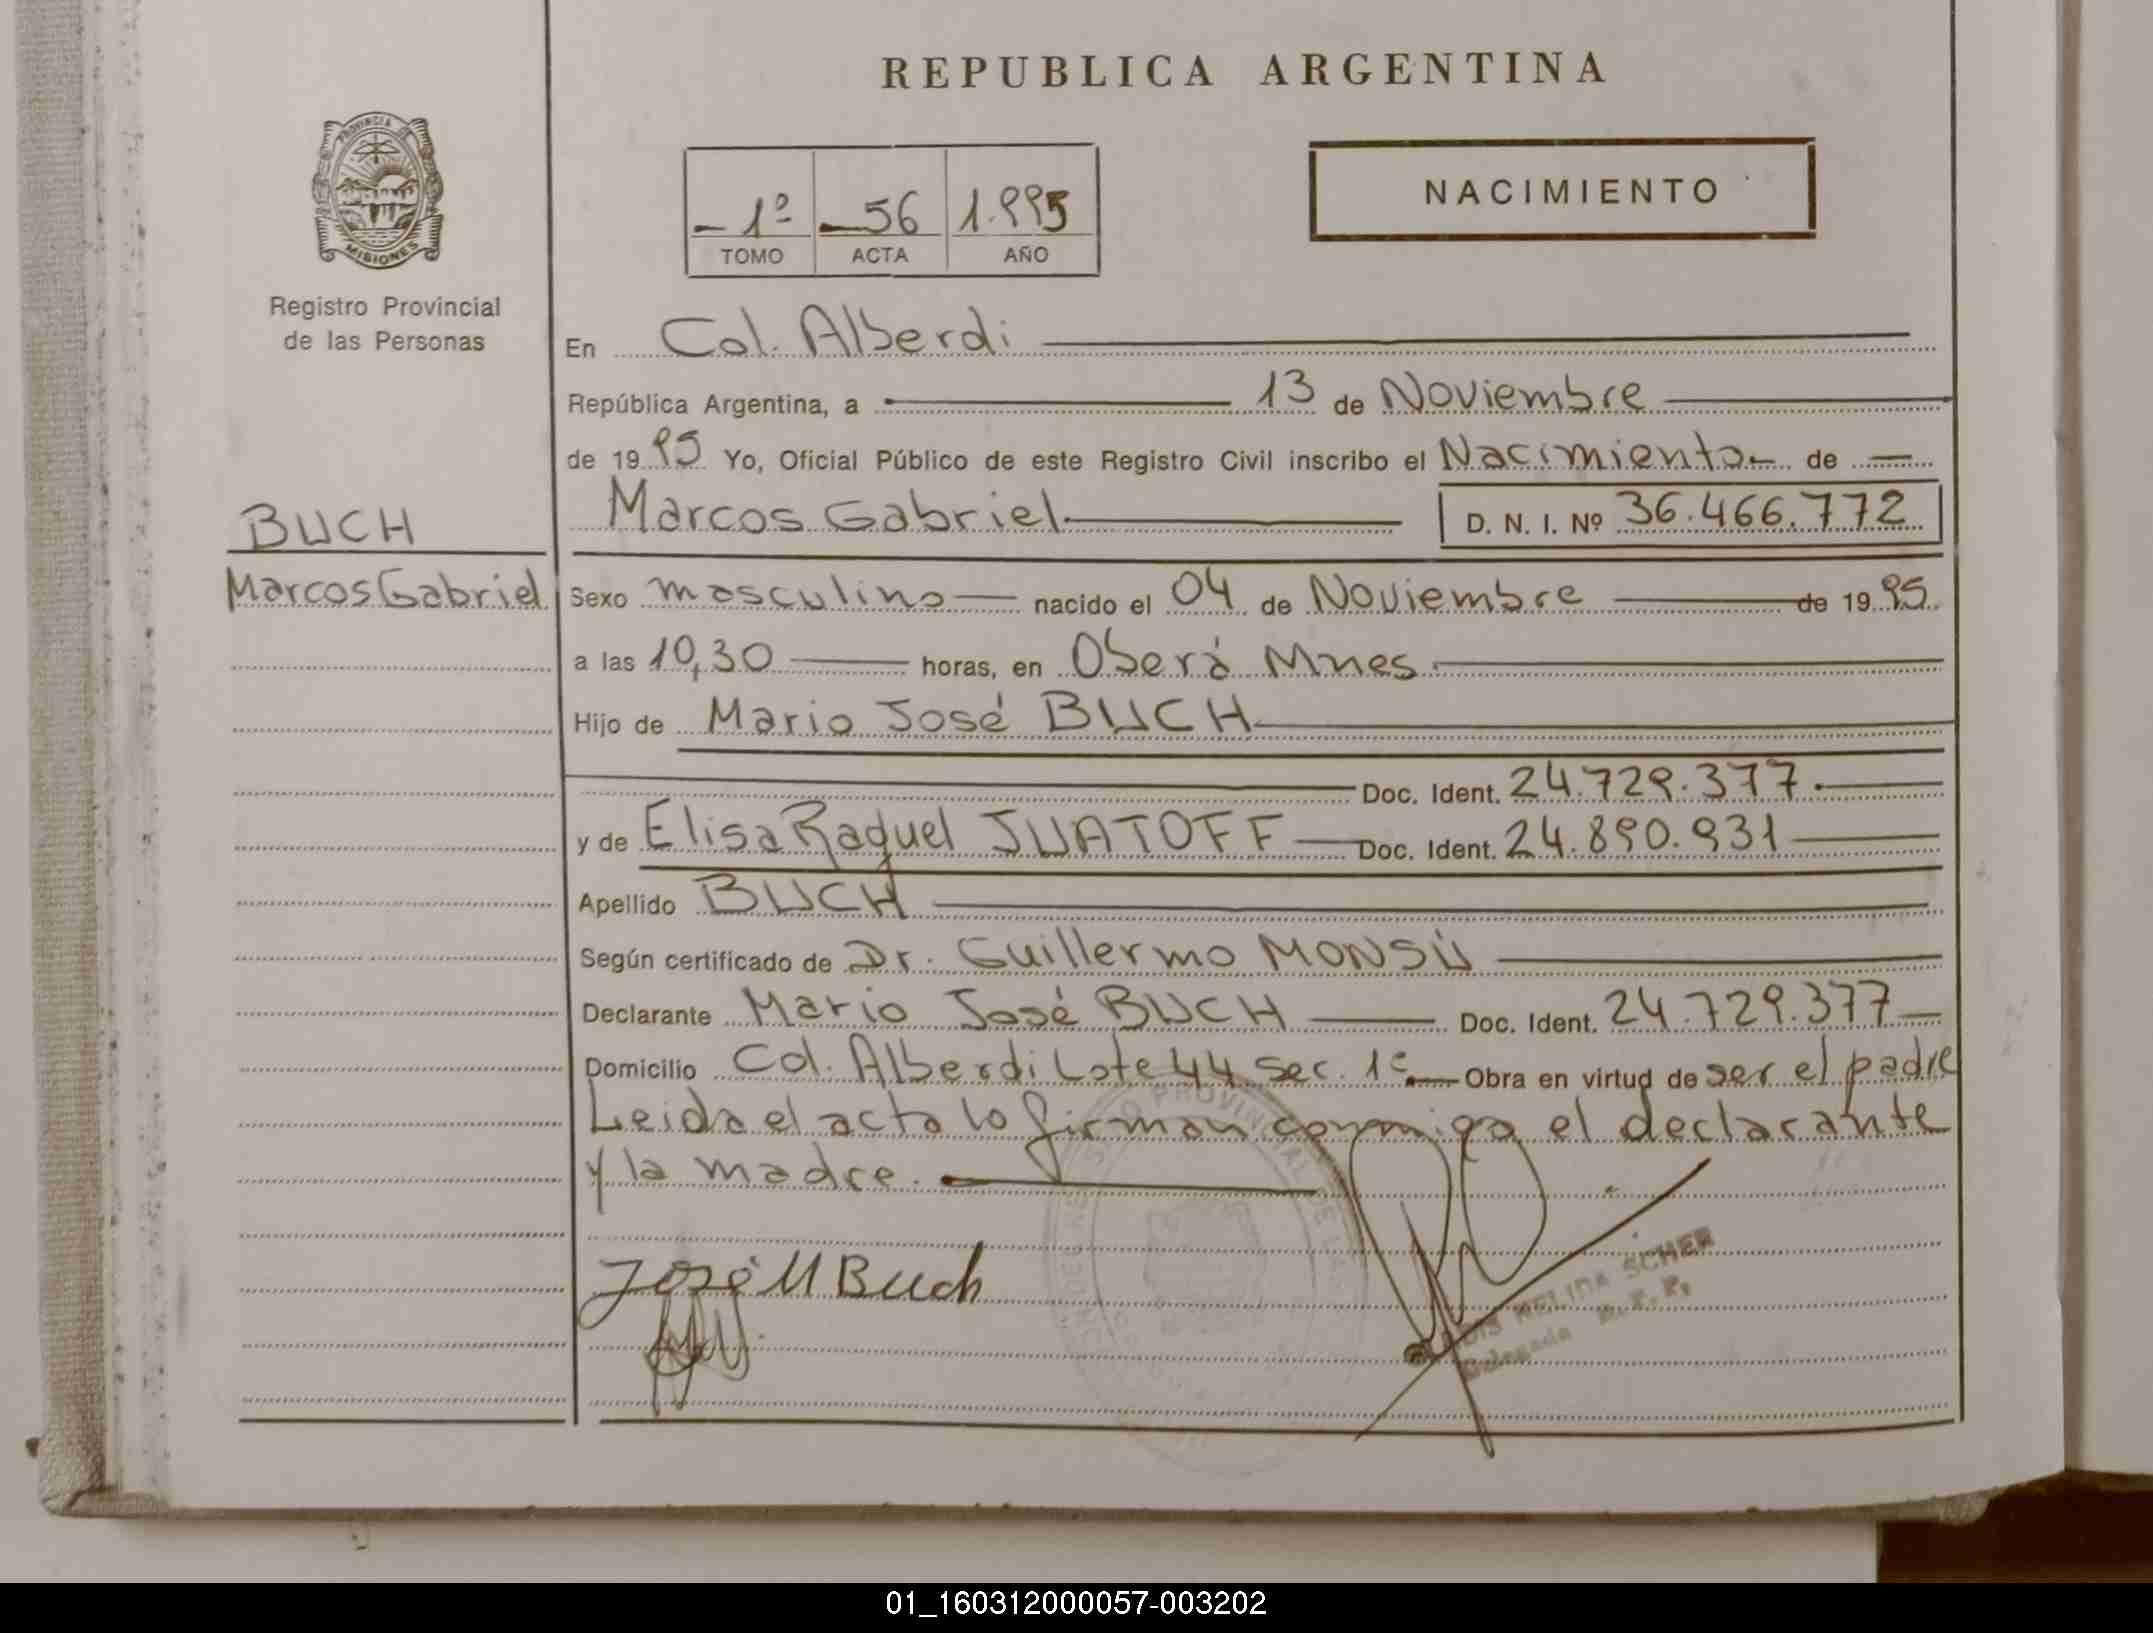 REPUBLICA ARGENTINA
PROVINCIA DE
MISIONES
Registro Provincial
de las Personas
1º 56 1.995
TOMO ACTA AÑO
NACIMIENTO
En Col. Alberdi
República Argentina, a 13 de Noviembre
de 1995 Yo, Oficial Público de este Registro Civil inscribo el Nacimiento de
Marcos Gabriel D. N. I. Nº 36.466.772
BUCH
Marcos Gabriel
Sexo masculino nacido el 04 de Noviembre de 1995
a las 10,30 horas, en Oberá Mnes.
Hijo de Mario José BUCH
Doc. Ident. 24.729.377.
y de Elisa Raquel JUATOFF Doc. Ident. 24.890.931
Apellido BUCH
Según certificado de Dr. Guillermo MONSÚ
Declarante Mario José BUCH Doc. Ident. 24.729.377
Domicilio Col. Alberdi Lote 44 Sec. 1º Obra en virtud de ser el padre
Leida el acta lo firman conmigo el declarante
y la madre.
José M Buch
NELIDA SCHER
Delegada R. P. P.
01_160312000057-003202